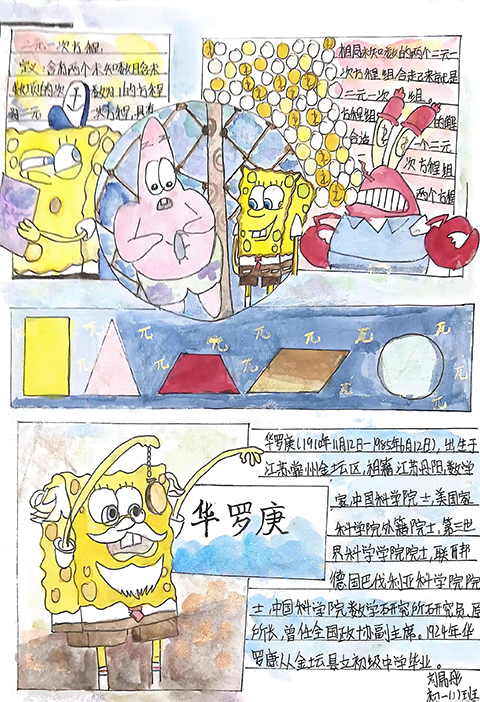 二元一次方程
定义:含有两个未知数,且含未
知数项的次数为1的方程
为二元一次方程,具有
相同未知数的两个二元一
次方程组合起来就是
二元一次组。
方程组的解
合适一个二元
次方程组
两个方程
π π π π π π π π π
华罗庚(1910年11月12日-1985年6月12日),出生于
江苏常州金坛区,祖籍江苏丹阳,数学
家,中国科学院士,美国家
科学院外籍院士,第三世
界科学学院院士,联邦
德国巴伐利亚科学院院
士,中国科学院数学研究所研究员、原
所长,曾任全国政协副主席。1924年华
罗庚从金坛县立初级中学毕业。
华罗庚
初一(1)班